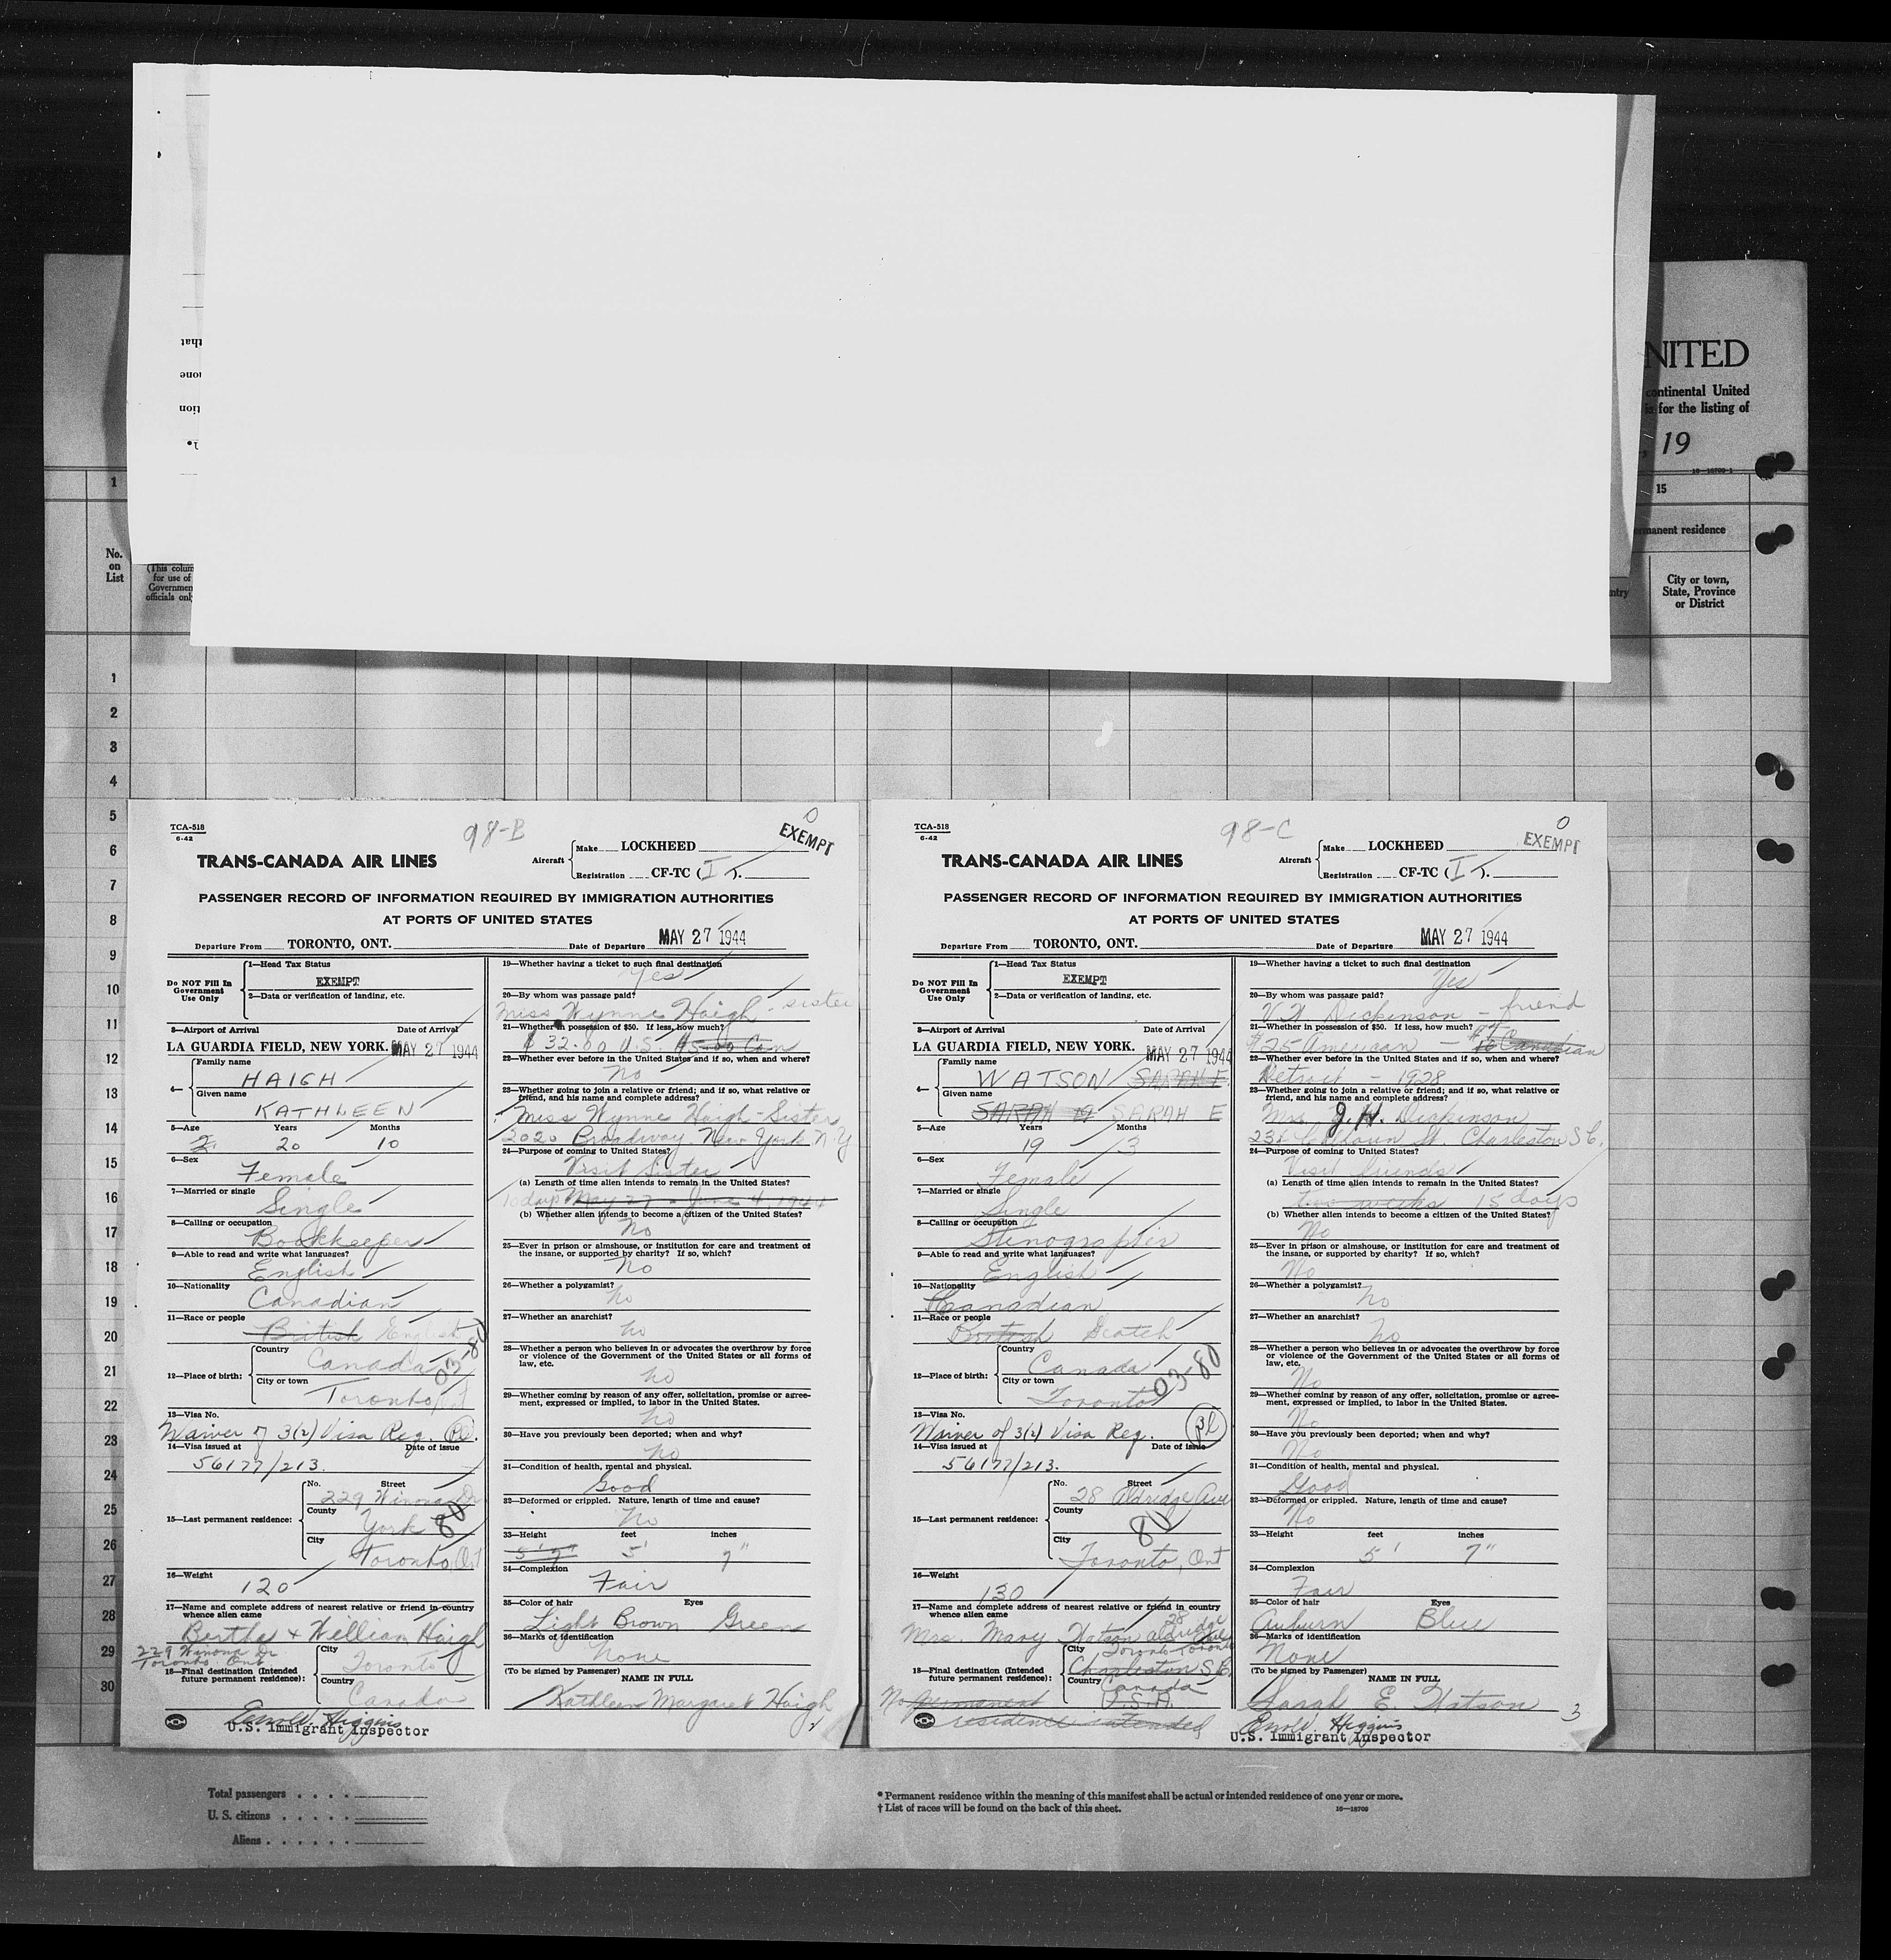 NITED
continental United
is for the listing of
19
16—18700-1
1
15
manent residence
No.
on
List
(This colum
for use of
Governmen
officials onl
ntry
City or town,
State, Province
or District
1
2
3
4
5
6
7
8
9
10
11
12
13
14
15
16
17
18
19
20
21
22
23
24
25
26
27
28
29
30
TCA-518
6-42
98-B
0
EXEMPT
TRANS-CANADA AIR LINES
Aircraft
Make LOCKHEED
Registration CF-TC (I).
PASSENGER RECORD OF INFORMATION REQUIRED BY IMMIGRATION AUTHORITIES
AT PORTS OF UNITED STATES
Departure From TORONTO, ONT. Date of Departure MAY 27 1944
Do NOT Fill In
Government
Use Only
1—Head Tax Status
EXEMPT
2—Data or verification of landing, etc.
3—Airport of Arrival Date of Arrival
LA GUARDIA FIELD, NEW YORK. MAY 27 1944
4—
Family name
HAIGH
Given name
KATHLEEN
5—Age Years Months
20 10
6—Sex
Female
7—Married or single
Single
8—Calling or occupation
Bookkeeper
9—Able to read and write what languages?
English
10—Nationality
Canadian
11—Race or people
British English
12—Place of birth:
Country
Canada
City or town
Toronto
03-80
13—Visa No.
Waiver of 3(2) Visa Reg.
14—Visa issued at Date of issue
56177/213.
15—Last permanent residence:
No. Street
229 Winona Dr
County
York 80
City
Toronto, Ont
16—Weight
120
17—Name and complete address of nearest relative or friend in country
whence alien came
Bertha & William Haigh
229 Winona Dr
Toronto Ont
18—Final destination (Intended
future permanent residence):
City
Toronto
Country
Canada
Higgins
U.S. Immigrant Inspector
19—Whether having a ticket to such final destination
Yes
20—By whom was passage paid?
Miss Wynne Haigh - sister
21—Whether in possession of $50. If less, how much?
$32.00 U.S. $5.00 Can
22—Whether ever before in the United States and if so, when and where?
No
23—Whether going to join a relative or friend; and if so, what relative or
friend, and his name and complete address?
Miss Wynne Haigh - Sister
2020 Broadway. New York. N.Y
24—Purpose of coming to United States?
Visit Sister
(a) Length of time alien intends to remain in the United States?
10 days May 27 - June 4 1944
(b) Whether alien intends to become a citizen of the United States?
No
25—Ever in prison or almshouse, or institution for care and treatment of
the insane, or supported by charity? If so, which?
No
26—Whether a polygamist?
No
27—Whether an anarchist?
No
28—Whether a person who believes in or advocates the overthrow by force
or violence of the Government of the United States or all forms of
law, etc.
No
29—Whether coming by reason of any offer, solicitation, promise or agree-
ment, expressed or implied, to labor in the United States.
No
30—Have you previously been deported; when and why?
No
31—Condition of health, mental and physical.
Good
32—Deformed or crippled. Nature, length of time and cause?
No
33—Height feet inches
5'7" 5' 7"
34—Complexion
Fair
35—Color of hair Eyes
Light Brown Green
36—Marks of identification
None
(To be signed by Passenger) NAME IN FULL
Kathleen Margaret Haigh
2
TCA-518
6-42
98-C
0
EXEMPT
TRANS-CANADA AIR LINES
Aircraft
Make LOCKHEED
Registration CF-TC (I).
PASSENGER RECORD OF INFORMATION REQUIRED BY IMMIGRATION AUTHORITIES
AT PORTS OF UNITED STATES
Departure From TORONTO, ONT. Date of Departure MAY 27 1944
Do NOT Fill In
Government
Use Only
1—Head Tax Status
EXEMPT
2—Data or verification of landing, etc.
3—Airport of Arrival Date of Arrival
LA GUARDIA FIELD, NEW YORK. MAY 27 1944
4—
Family name
WATSON SARAH E.
Given name
SARAH SARAH E
5—Age Years Months
19 3
6—Sex
Female
7—Married or single
Single
8—Calling or occupation
Stenographer
9—Able to read and write what languages?
English
10—Nationality
Canadian
11—Race or people
British Scotch
12—Place of birth:
Country
Canada
City or town
Toronto
03-80
13—Visa No.
Waiver of 3(2) Visa Reg.
14—Visa issued at Date of issue
56177/213.
15—Last permanent residence:
No. Street
28 Aldridge Ave
County
80
City
Toronto, Ont
16—Weight
130
17—Name and complete address of nearest relative or friend in country
whence alien came
Mrs. Mary Watson 28 Aldridge Ave
18—Final destination (Intended
future permanent residence):
City
Toronto
Charleston S.C.
Country
Canada
U.S.A.
No permanent
residence intended
19—Whether having a ticket to such final destination
Yes
20—By whom was passage paid?
Dickinson - friend
21—Whether in possession of $50. If less, how much?
$25 American - Canadian
22—Whether ever before in the United States and if so, when and where?
Detroit - 1928
23—Whether going to join a relative or friend; and if so, what relative or
friend, and his name and complete address?
Mrs. J.H. Dickinson
Calhoun St. Charleston S.C.
24—Purpose of coming to United States?
Visit friends
(a) Length of time alien intends to remain in the United States?
two weeks 15 days
(b) Whether alien intends to become a citizen of the United States?
No
25—Ever in prison or almshouse, or institution for care and treatment of
the insane, or supported by charity? If so, which?
No
26—Whether a polygamist?
No
27—Whether an anarchist?
No
28—Whether a person who believes in or advocates the overthrow by force
or violence of the Government of the United States or all forms of
law, etc.
No
29—Whether coming by reason of any offer, solicitation, promise or agree-
ment, expressed or implied, to labor in the United States.
No
30—Have you previously been deported; when and why?
No
31—Condition of health, mental and physical.
Good
32—Deformed or crippled. Nature, length of time and cause?
No
33—Height feet inches
5' 7"
34—Complexion
Fair
35—Color of hair Eyes
Auburn Blue
36—Marks of identification
None
(To be signed by Passenger) NAME IN FULL
Sarah E. Watson
3
Higgins
U.S. Immigrant Inspector
Total passengers
U. S. citizens
Aliens
* Permanent residence within the meaning of this manifest shall be actual or intended residence of one year or more.
† List of races will be found on the back of this sheet. 16—18700